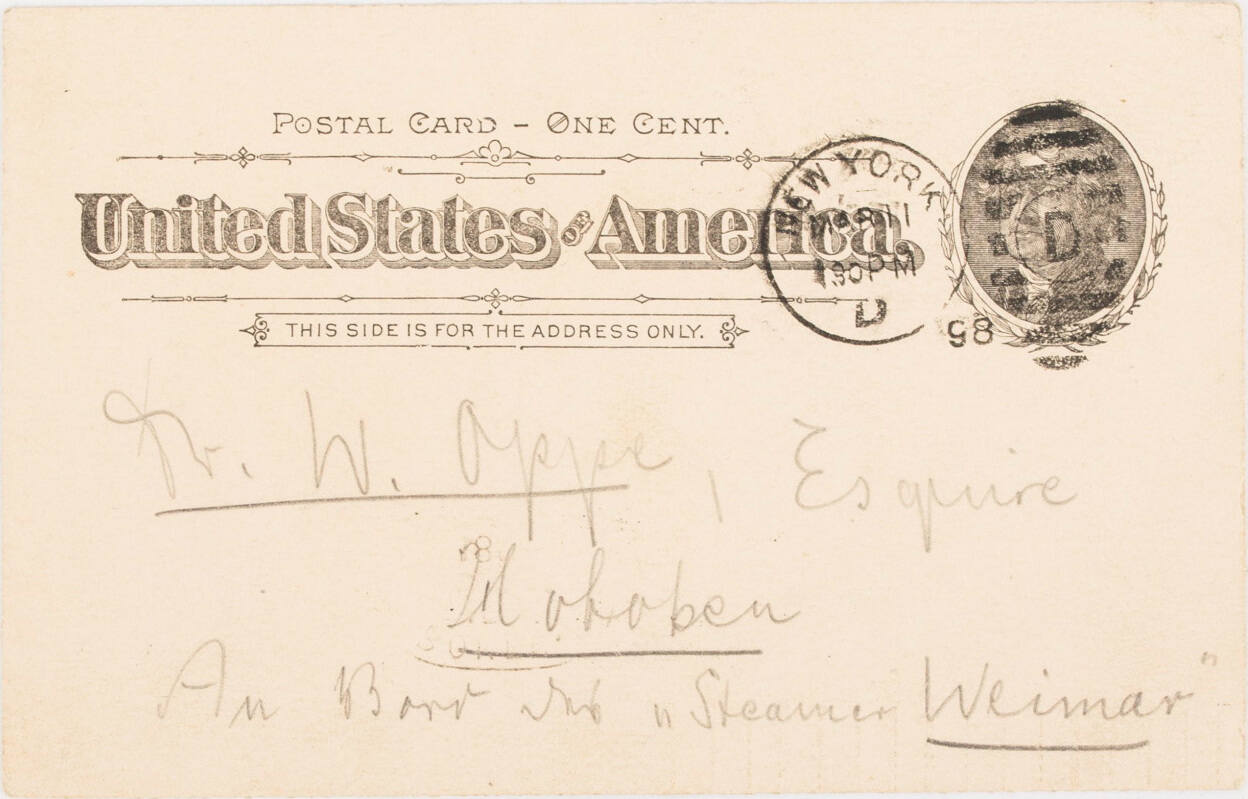 POSTAL CARD – ONE CENT.
United States OF America.
THIS SIDE IS FOR THE ADDRESS ONLY.
NEW YORK
MAR 11
30 PM
D
98
D
Dr. W. Oppe, Esquire
Hoboken
An Bord des „Steamer Weimar"